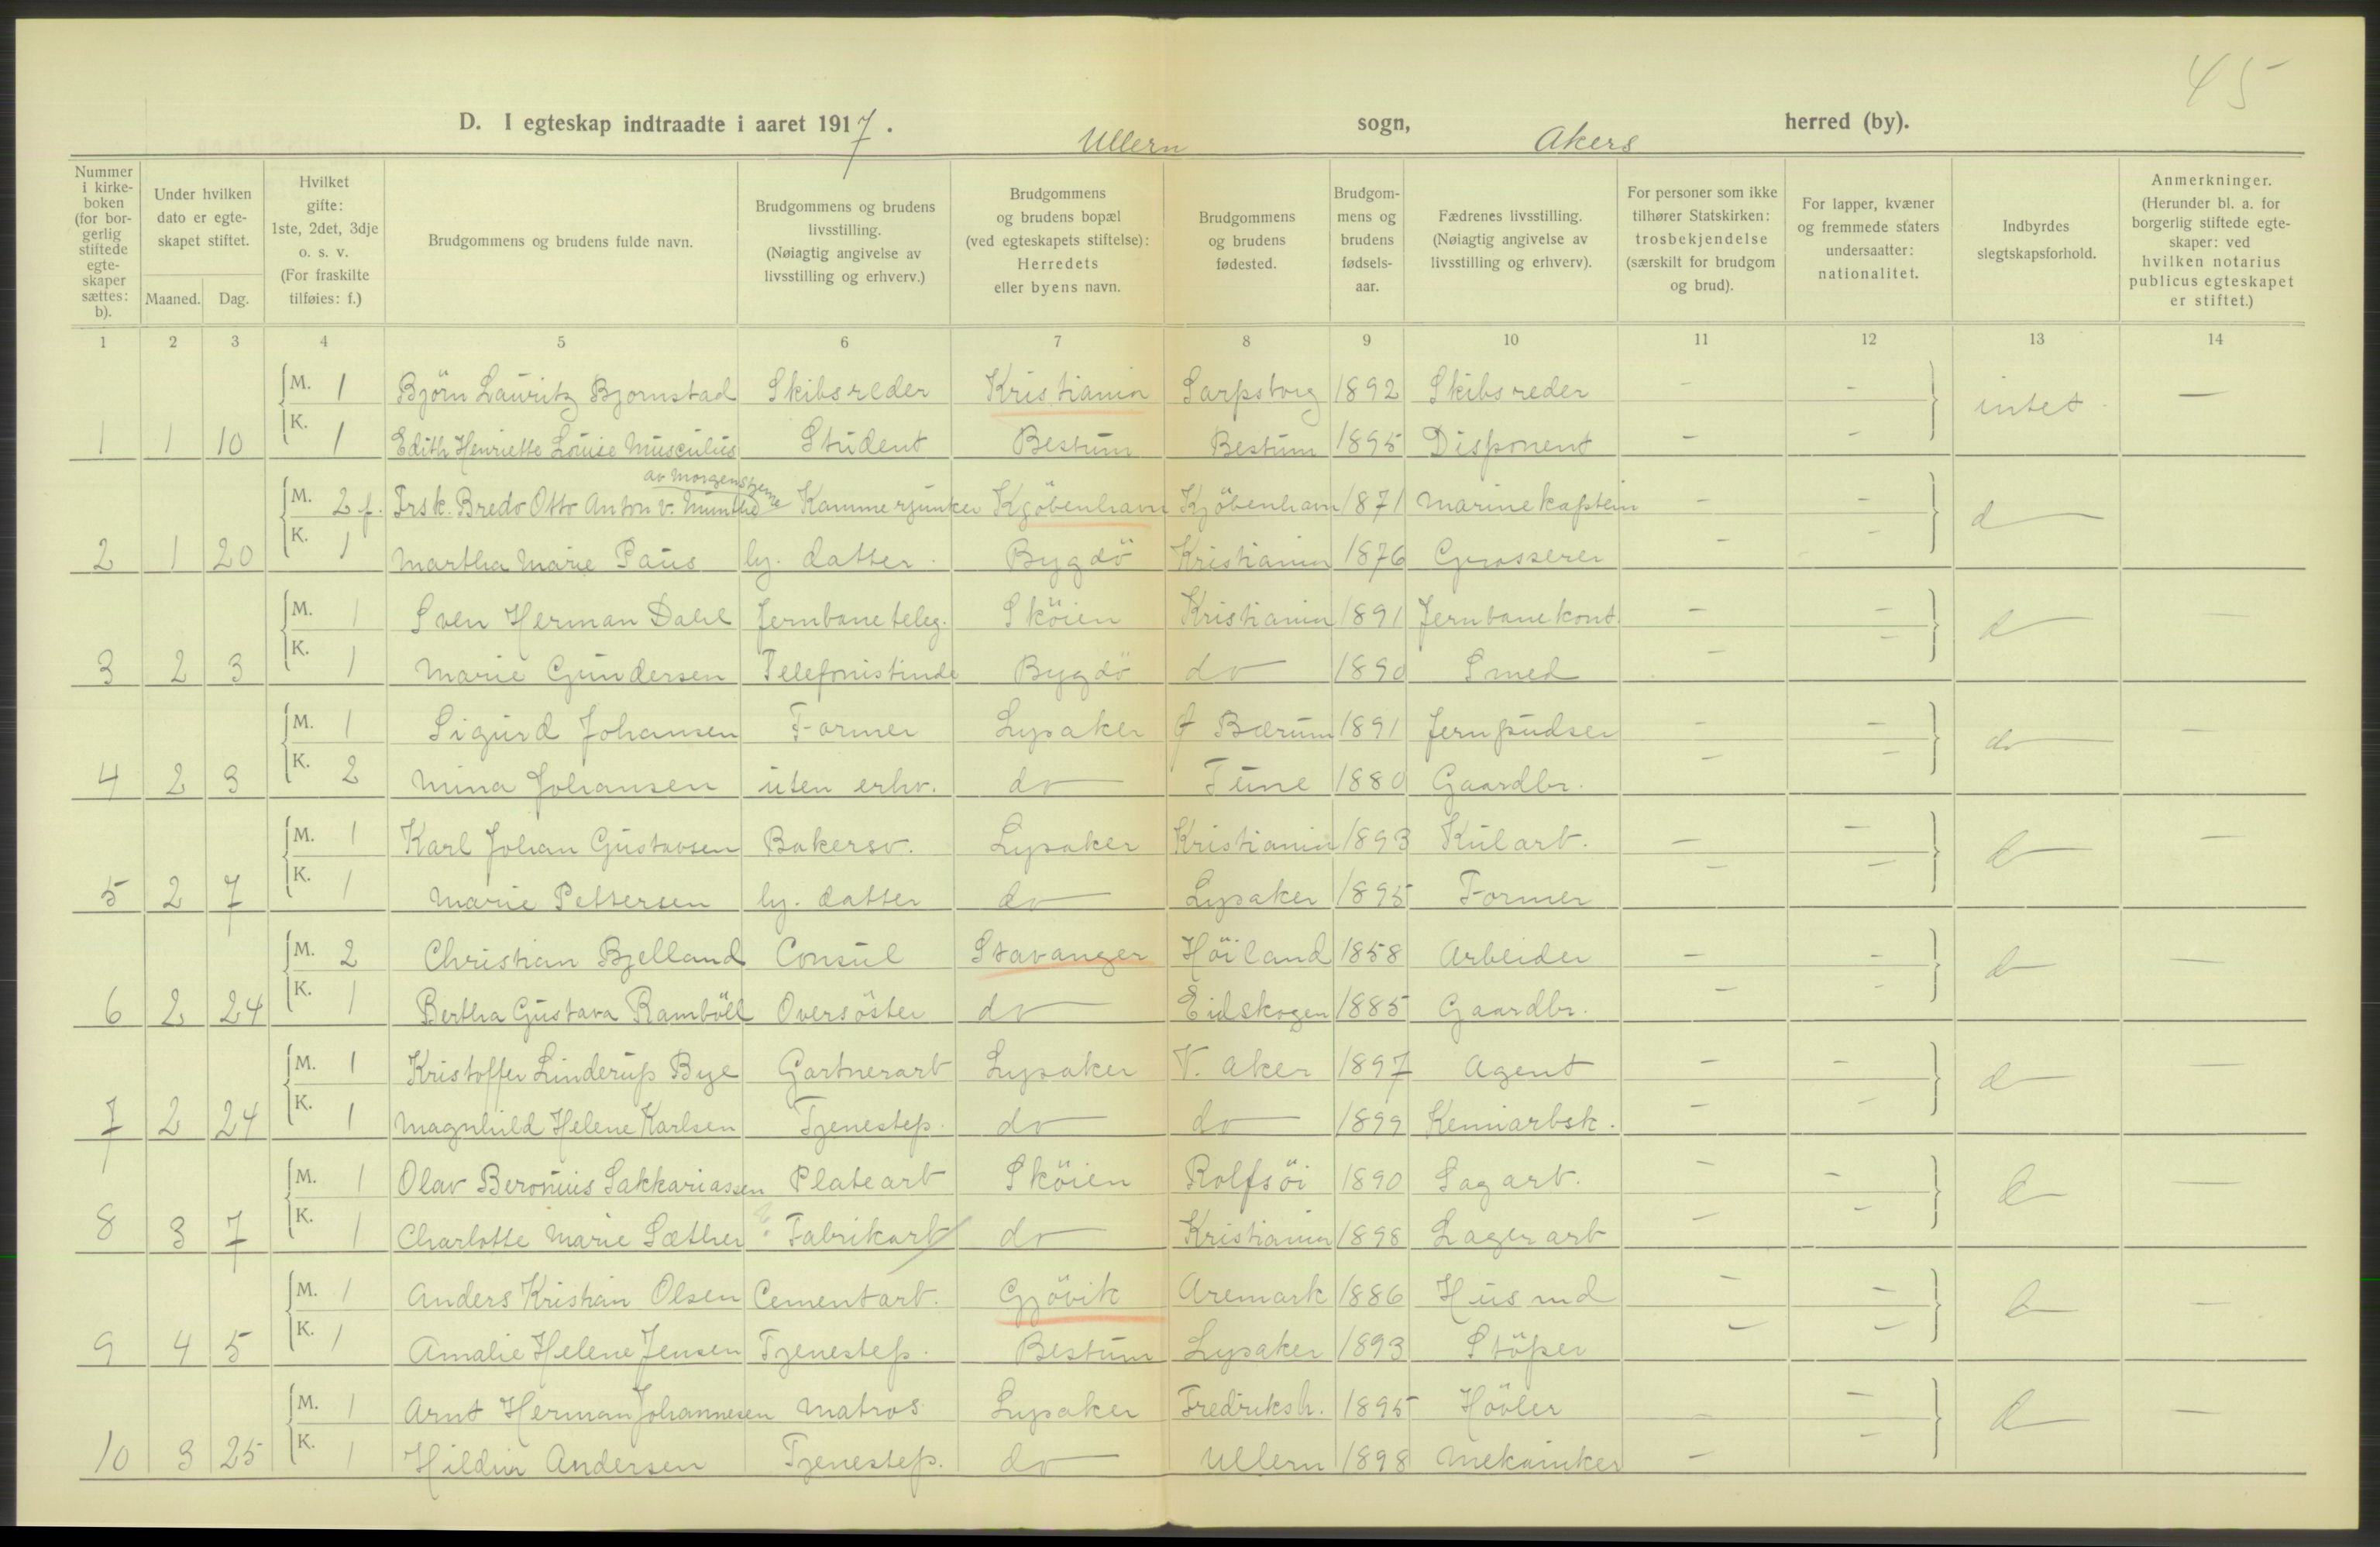 45
D. I egteskap indtraadte i aaret 1917. Ullern sogn, Akers herred (by).
Nummer i kirkeboken (for borgerlig stiftede egteskaper sættes: b).
Under hvilken dato er egteskapet stiftet.
Maaned. Dag.
Hvilket gifte: 1ste, 2det, 3dje o. s. v. (For fraskilte tilføies: f.)
Brudgommens og brudens fulde navn.
Brudgommens og brudens livsstilling. (Nøiagtig angivelse av livsstilling og erhverv.)
Brudgommens og brudens bopæl (ved egteskapets stiftelse): Herredets eller byens navn.
Brudgommens og brudens fødested.
Brudgommens og brudens fødselsaar.
Fædrenes livsstilling. (Nøiagtig angivelse av livsstilling og erhverv).
For personer som ikke tilhører Statskirken: trosbekjendelse (særskilt for brudgom og brud).
For lapper, kvæner og fremmede staters undersaatter: nationalitet.
Indbyrdes slegtskapsforhold.
Anmerkninger. (Herunder bl. a. for borgerlig stiftede egteskaper: ved hvilken notarius publicus egteskapet er stiftet.)
1 2 3 4 5 6 7 8 9 10 11 12 13 14
M. 1 Björn Lauritz Bjornstad Skibsreder Kristiania Sarpsborg 1892 Skibsreder - - intet -
1 1 10 K. 1 Edith Henriette Louise Musculus Student Bestum Bestum 1895 Disponent - -
av Morgenstjerne
M. 2 f. Frsk. Bredo Otto Anton v. Munthe Kammerjunker Kjöbenhavn Kjöbenhavn 1871 Marinekaptein - - d
2 1 20 K. 1 Martha Marie Paus hj. datter. Bygdö Kristiania 1876 Grosserer - -
M. 1 Sven Herman Dahl Jernbaneteleg. Sköien Kristiania 1891 Jernbanekont. - - d -
3 2 3 K. 1 Marie Gundersen Telefonistinde Bygdö do 1890 Smed - -
M. 1 Sigurd Johansen Former Lysaker Bærum 1891 Jernpudser - - do -
4 2 3 K. 2 Mina Johansen uten erhv. do Tune 1880 Gaardbr. - -
M. 1 Karl Johan Gustavsen Bakersv. Lysaker Kristiania 1893 Kularb. - - d -
5 2 7 K. 1 Marie Pettersen hj. datter do Lysaker 1895 Former - -
M. 2 Christian Bjelland Consul Stavanger Höiland 1858 Arbeider - - d -
6 2 24 K. 1 Bertha Gustava Ramböll Oversöster do Eidskogen 1885 Gaardbr. - -
M. 1 Kristoffer Linderup Bye Gartnerarb Lysaker V. Aker 1897 Agent - - d -
7 2 24 K. 1 Magnhild Helene Karlsen Tjenestep. do do 1899 Kemiarbsk. - -
M. 1 Olav Beronius Sakkariassen Platearb Sköien Rolfsöi 1890 Sagarb. - - d -
8 3 7 K. 1 Charlotte Marie Sæther Fabrikarb do Kristiania 1898 Lagerarb - -
M. 1 Anders Kristian Olsen Cementarb. Gjövik Aremark 1886 Husmd - - d -
9 4 5 K. 1 Amalie Helene Jensen Tjenestep. Bestum Lysaker 1893 Stöper - -
M. 1 Arnt Herman Johannesen Matros Lysaker Fredriksh. 1895 Hövler - - d -
10 3 25 K. 1 Hildur Andersen Tjenestep. do Ullern 1898 Mekaniker - -